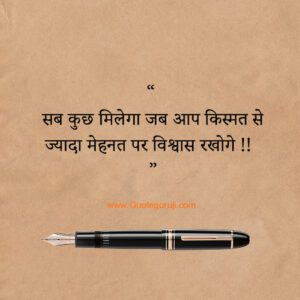 “
सब कुछ मिलेगा जब आप किस्मत से
ज्यादा मेहनत पर विश्वास रखोगे !!
”
www.Quoteguruji.com